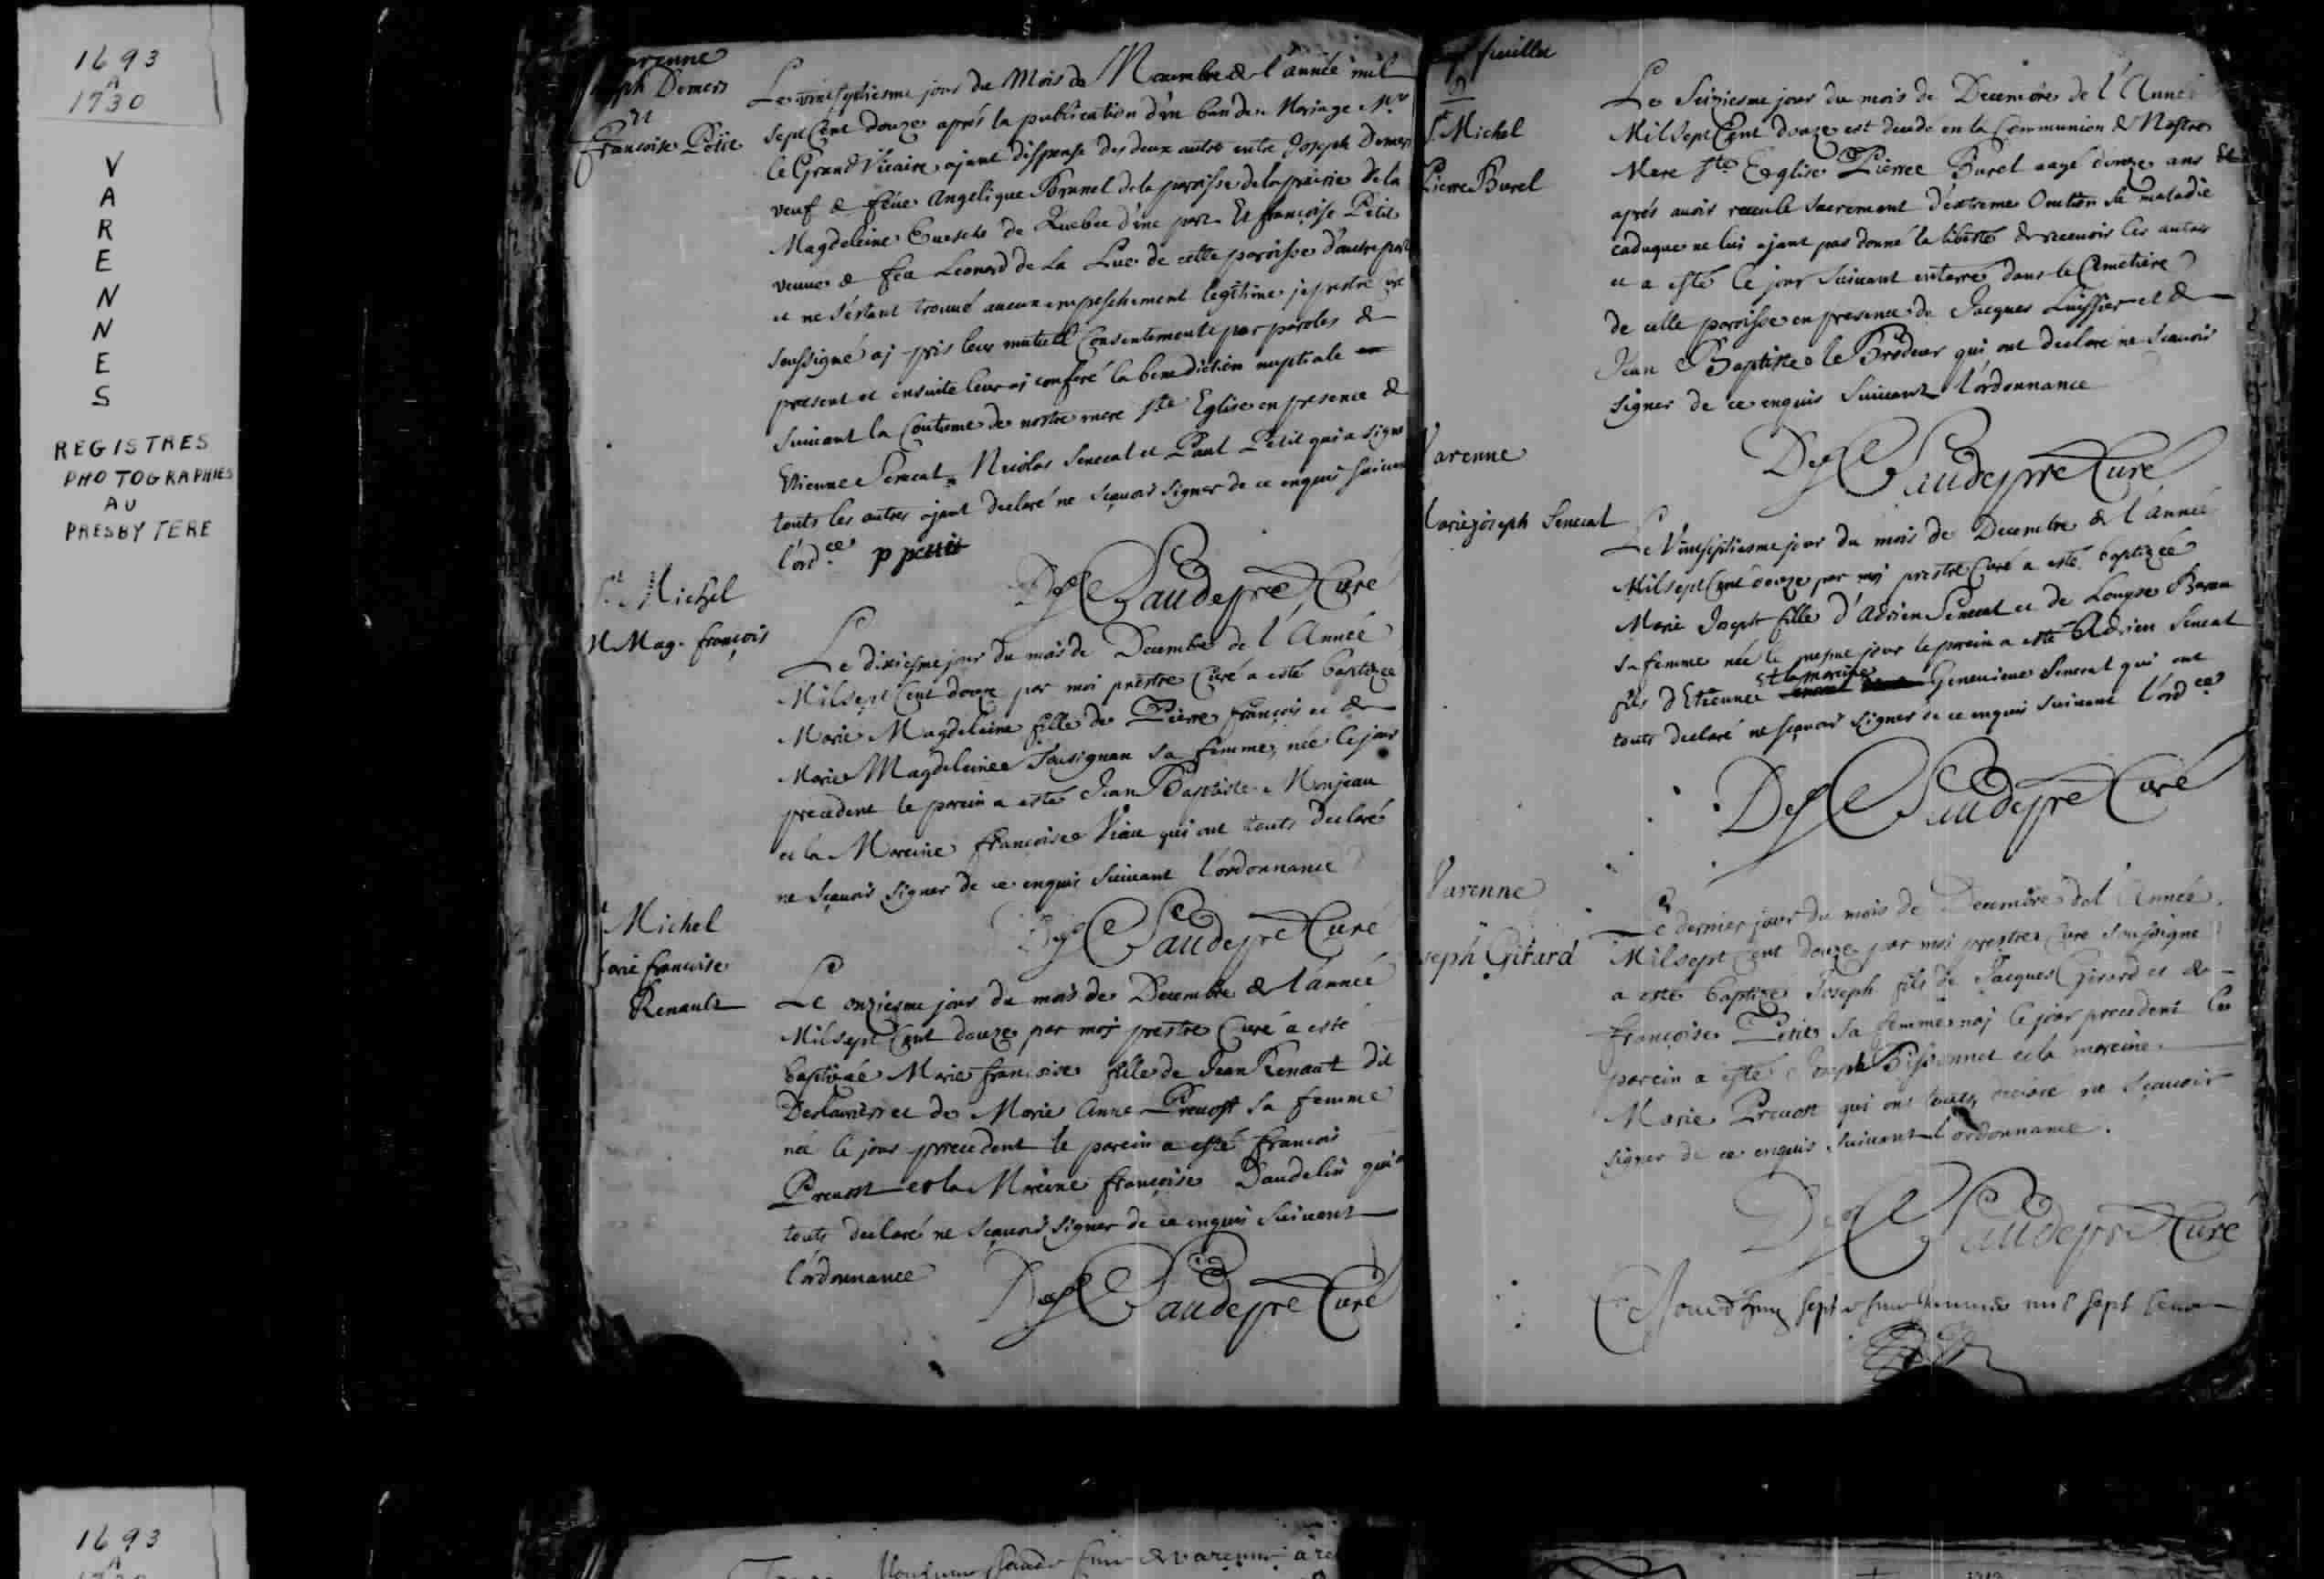 1693
A
1730
VARENNES
REGISTRES
PHOTOGRAPHIÉS
AU
PRESBYTERE
Demers
et
françoise Petit
Le vint septiesme jour du Mois de Nouembre de l'année mil
sept Cent douze aprés la publication d'un ban du Mariage Mr
le Grand Vicaire ajant dispensé des deux autres entre Joseph Demers
veuf de féue Angelique Brunel de la paroisse de la prairie de la
Magdeleine de Quebec d'une part Et françoise Petit
veuue de feu Leonard de La Luc de cette paroisse d'autre part
et ne s'estant trouué aucun empeschement legitime je prestre Curé
soussigné aj pris leur mutuel Consentement par paroles de
present et ensuite leur aj conferé la benediction nuptiale
suiuant la Coutume de nostre mere Ste Eglise en presence de
Etienne Senecal Nicolas Senecal et Paul Petit qui a signé
touts les autres ajant declaré ne sçauoir signer de ce enquis suiuant
l'ordce p petit
Curé
St Michel
M Mag. françois
Le dixiesme jour du mois de Decembre de l'Année
Milsept Cent douze par moi prestre Curé a esté baptizée
Marie Magdeleine fille de Pierre françois et de
Marie Magdeleine Tousignan sa femme, née le jour
precedent le parein a esté Jean Baptiste Monjeau
et la Mareine françoise Viau qui ont touts declaré
ne sçauoir signer de ce enquis suiuant l'ordonnance
Curé
Michel
françoise
Renault
Le onziesme jour du mois de Decembre de l'année
Milsept Cent douze par moj prestre Curé a esté
baptizée Marie françoise fille de Jean Renaut dit
Deslauriers et de Marie Anne Preuost sa femme
née le jour precedent le parein a esté françois
Preuost et la Mareine françoise Daudelin qui
touts declaré ne sçauoir signer de ce enquis suiuant
l'ordonnance
Curé
feuillet
St Michel
Pierre Burel
Le Seiziesme jour du mois de Decembre de l'Année
Milsept Cent douze est decedé en la Communion de Nostre
Mere Ste Eglise Pierre Burel aagé douze ans Et
aprés auoir receu le sacrement d'extreme Onction sa maladie
caduque ne lui ajant pas donné la liberté de receuoir les autres
et a esté le jour suiuant enterré dans le Cimetiere
de cette paroisse en presence de Jacques Lussier et de
Jean Baptiste le Brodeur qui ont declaré ne sçauoir
signer de ce enquis suiuant l'ordonnance
Curé
Varenne
joseph Senecal
Le Vint septiesme jour du mois de Decembre de l'Année
Milsept Cent douze par moj prestre Curé a esté baptizée
Marie Joseph fille d'Adrien Senecal et de Louyse
sa femme née le mesme jour le parein a esté Adrien Senecal
fils d'Etienne Et la mareine Geneuieue Senecal qui ont
touts declaré ne sçauoir signer de ce enquis suiuant l'ordce
Curé
Varenne
Girard
Le dernier jour du mois de Decembre de l'Année
Milsept Cent douze par moi prestre Curé soussigné
a esté baptizé Joseph fils de Jacques Girard et de
françoise Petit sa femme naj le jour precedent le
parein a esté Joseph Bissonnet et la mareine
Marie Preuost qui ont touts declaré ne sçauoir
signer de ce enquis suiuant l'ordonnance.
Curé
mil sept
1693
A